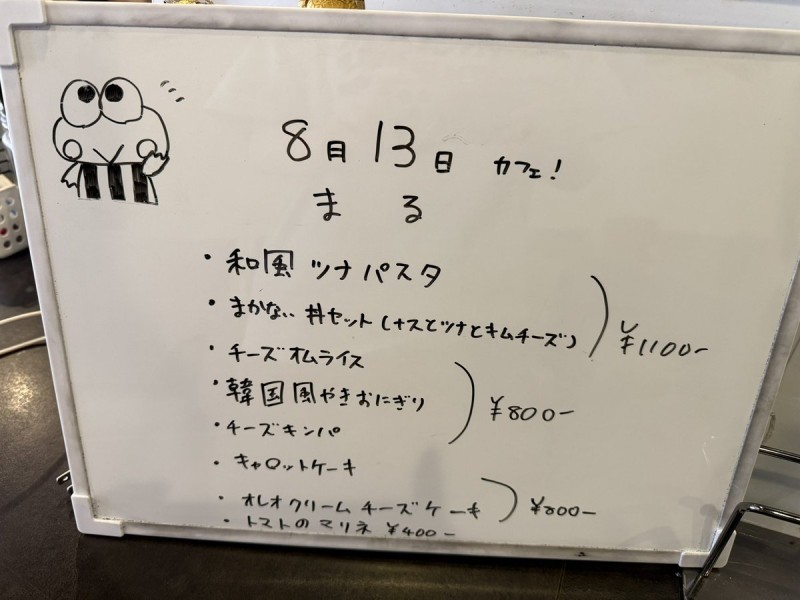 8月13日 カフェ!
まる
・和風ツナパスタ
・まかない丼セット(ナスとツナとキムチーズ) ¥1100-
・チーズオムライス
・韓国風やきおにぎり ¥800-
・チーズキンパ
・キャロットケーキ
・オレオクリームチーズケーキ
・トマトのマリネ ¥400-